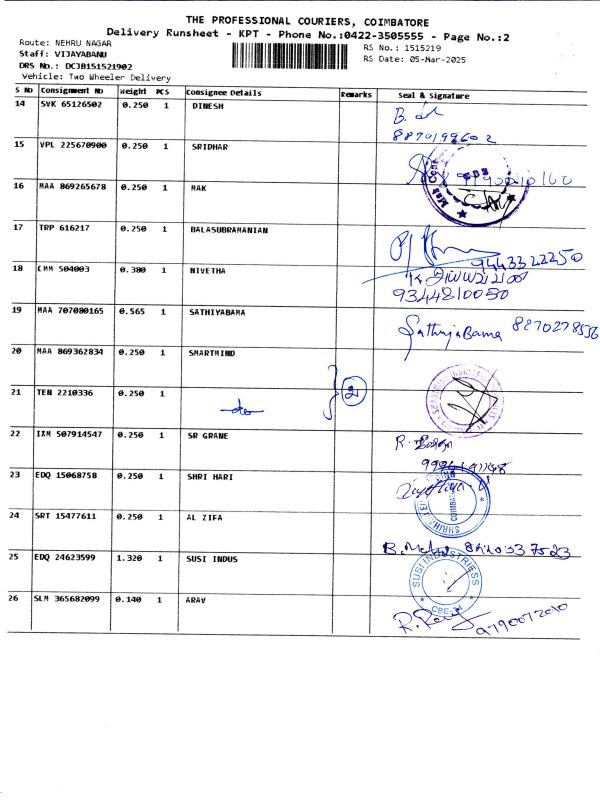 THE PROFESSIONAL COURIERS, COIMBATORE
Delivery Runsheet - KPT - Phone No.:0422-3505555 - Page No.:2
Route: NEHRU NAGAR
Staff: VIJAYABANU
DRS No.: DCJB151521902
Vehicle: Two Wheeler Delivery
RS No.: 1515219
RS Date: 05-Mar-2025
S No Consignment No Weight PCS Consignee Details Remarks Seal & Signature
14 SVK 65126502 0.250 1 DINESH
15 VPL 225670900 0.250 1 SRIDHAR
16 MAA 869265678 0.250 1 MAK
17 TRP 616217 0.250 1 BALASUBRAMANIAN
9443322250
18 CMM 504003 0.380 1 NIVETHA
9344210050
19 MAA 707080165 0.565 1 SATHIYABAMA
SathiyaBama 8270278536
20 MAA 869362834 0.250 1 SMARTMIND
21 TEN 2210336 0.250 1 do 2
22 IXM 507914547 0.250 1 SR GRANE
23 EDQ 15068758 0.250 1 SHRI HARI
24 SRT 15477611 0.250 1 AL ZIFA
25 EDQ 24623599 1.320 1 SUSI INDUS
SUSI INDUSTRIESS
CBE-14
26 SLM 365682099 0.140 1 ARAV
9790072010